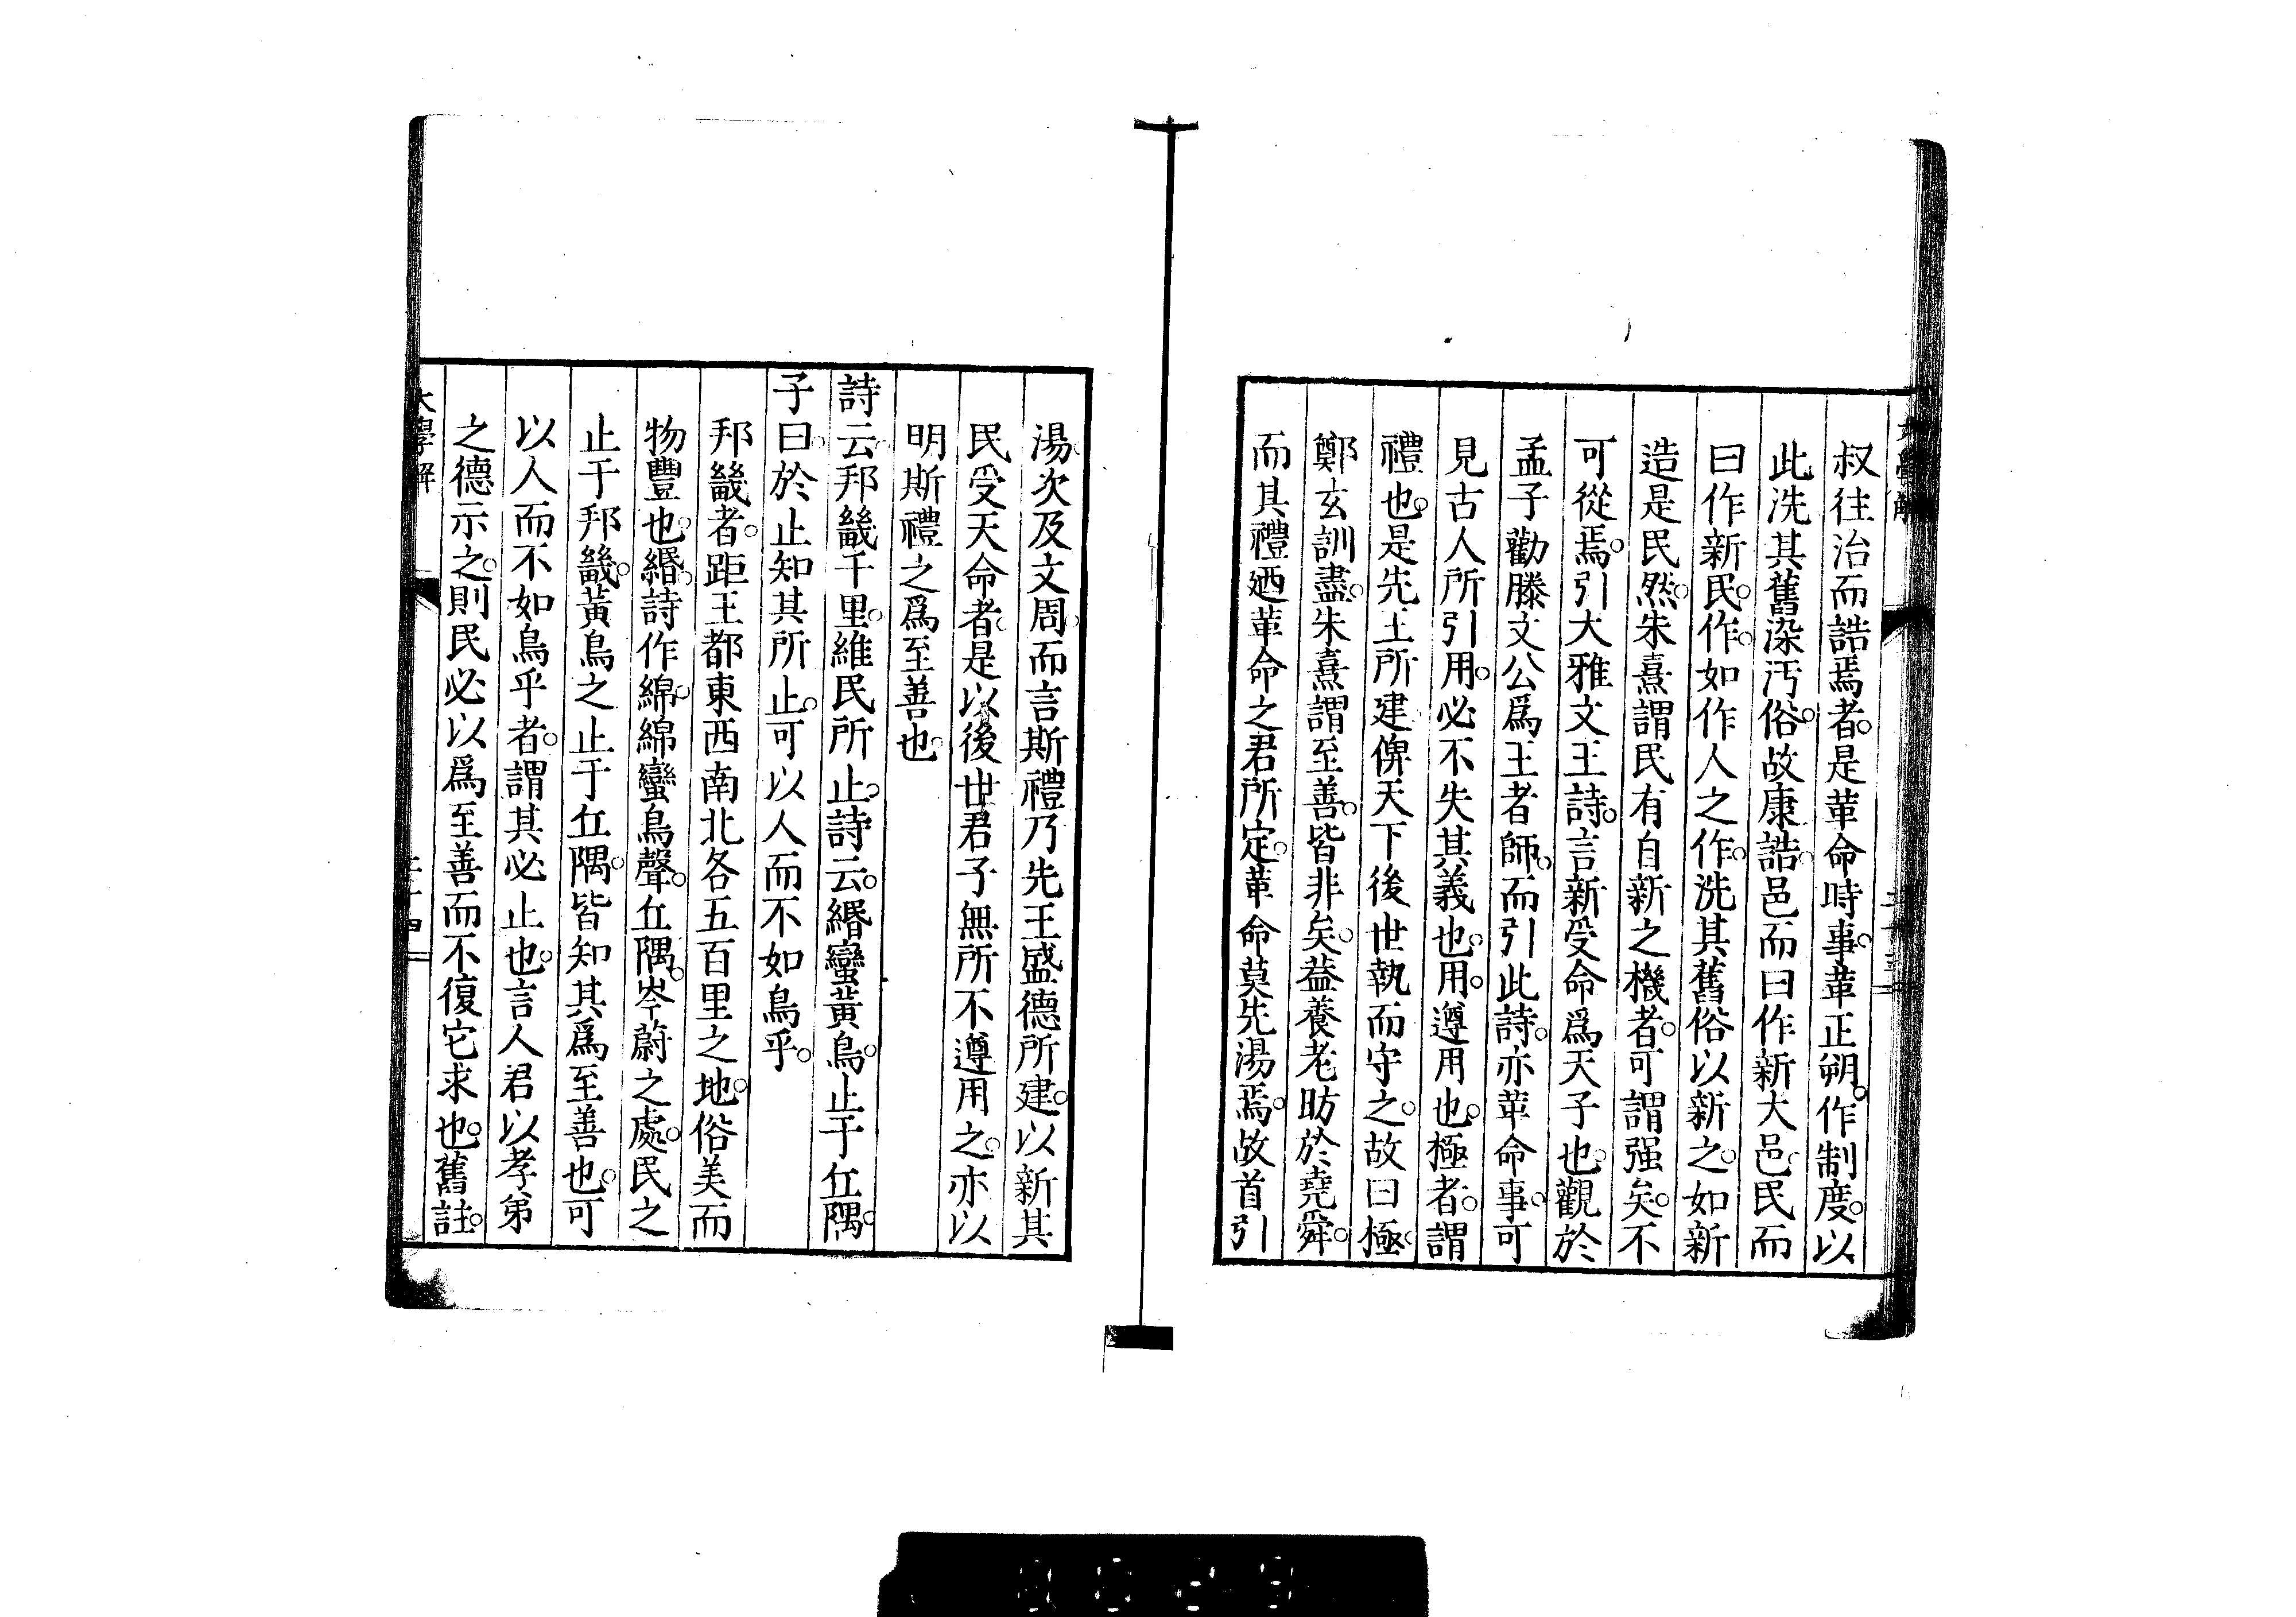 叔往治而誥焉者。是革命時事。革正朔。作制度。以
此洗其舊染汚俗。故康誥。邑而曰作新大邑。民而
曰作新民。作。如作人之作。洗其舊俗以新之。如新
造是民然。朱熹謂民有自新之機者。可謂强矣。不
可從焉。引大雅文王詩。言新受命爲天子也。觀於
孟子勸滕文公爲王者師。而引此詩。亦革命事。可
見古人所引用。必不失其義也。用。遵用也。極者。謂
禮也。是先王所建。俾天下後世執而守之。故曰極。
鄭玄訓盡。朱熹謂至善。皆非矣。葢養老昉於堯舜。
而其禮廼革命之君所定。革命莫先湯焉。故首引
湯。次及文周而言斯禮乃先王盛德所建。以新其
民受天命者。是以後世君子無所不遵用之。亦以
明斯禮之爲至善也。
詩云。邦畿千里。維民所止。詩云。緡蠻黃鳥。止于丘隅。
子曰。於止知其所止。可以人而不如鳥乎。
邦畿者。距王都東西南北各五百里之地。俗美而
物豐也。緡。詩作綿。綿蠻鳥聲。丘隅。岑蔚之處。民之
止于邦畿。黃鳥之止于丘隅。皆知其爲至善也。可
以人而不如鳥乎者。謂其必止也。言人君以孝弟
之德示之。則民必以爲至善而不復它求也。舊註。
大學解